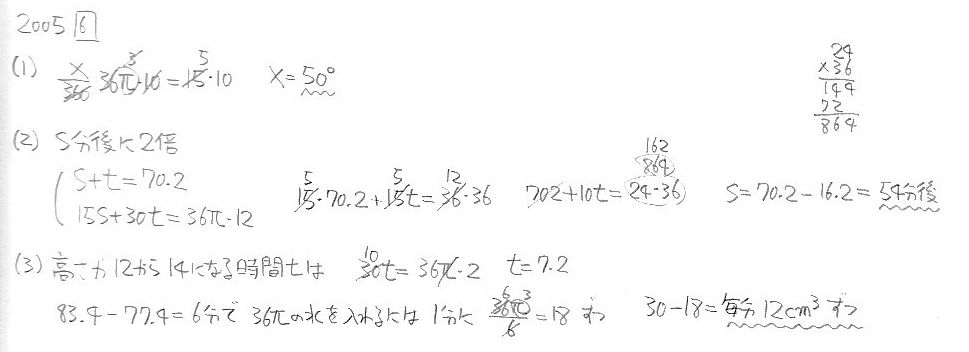 2005 6
(1) x/360 36π・10 = 15・10 x = 50°
3 5
24
×36
144
72
864
(2) S分後に2倍
S+t=70.2
15S+30t=36π・12
15・70.2+15t=36・36 702+10t=24・36 S=70.2-16.2=54分後
5 5 12 162
864
(3) 高さが12から14になる時間tは 30t=36π・2 t=7.2
10
83.4-77.4=6分で 36πの水を入れるには 1分に 36π/6=18 ずつ 30-18=毎分12cm³ずつ
6 3